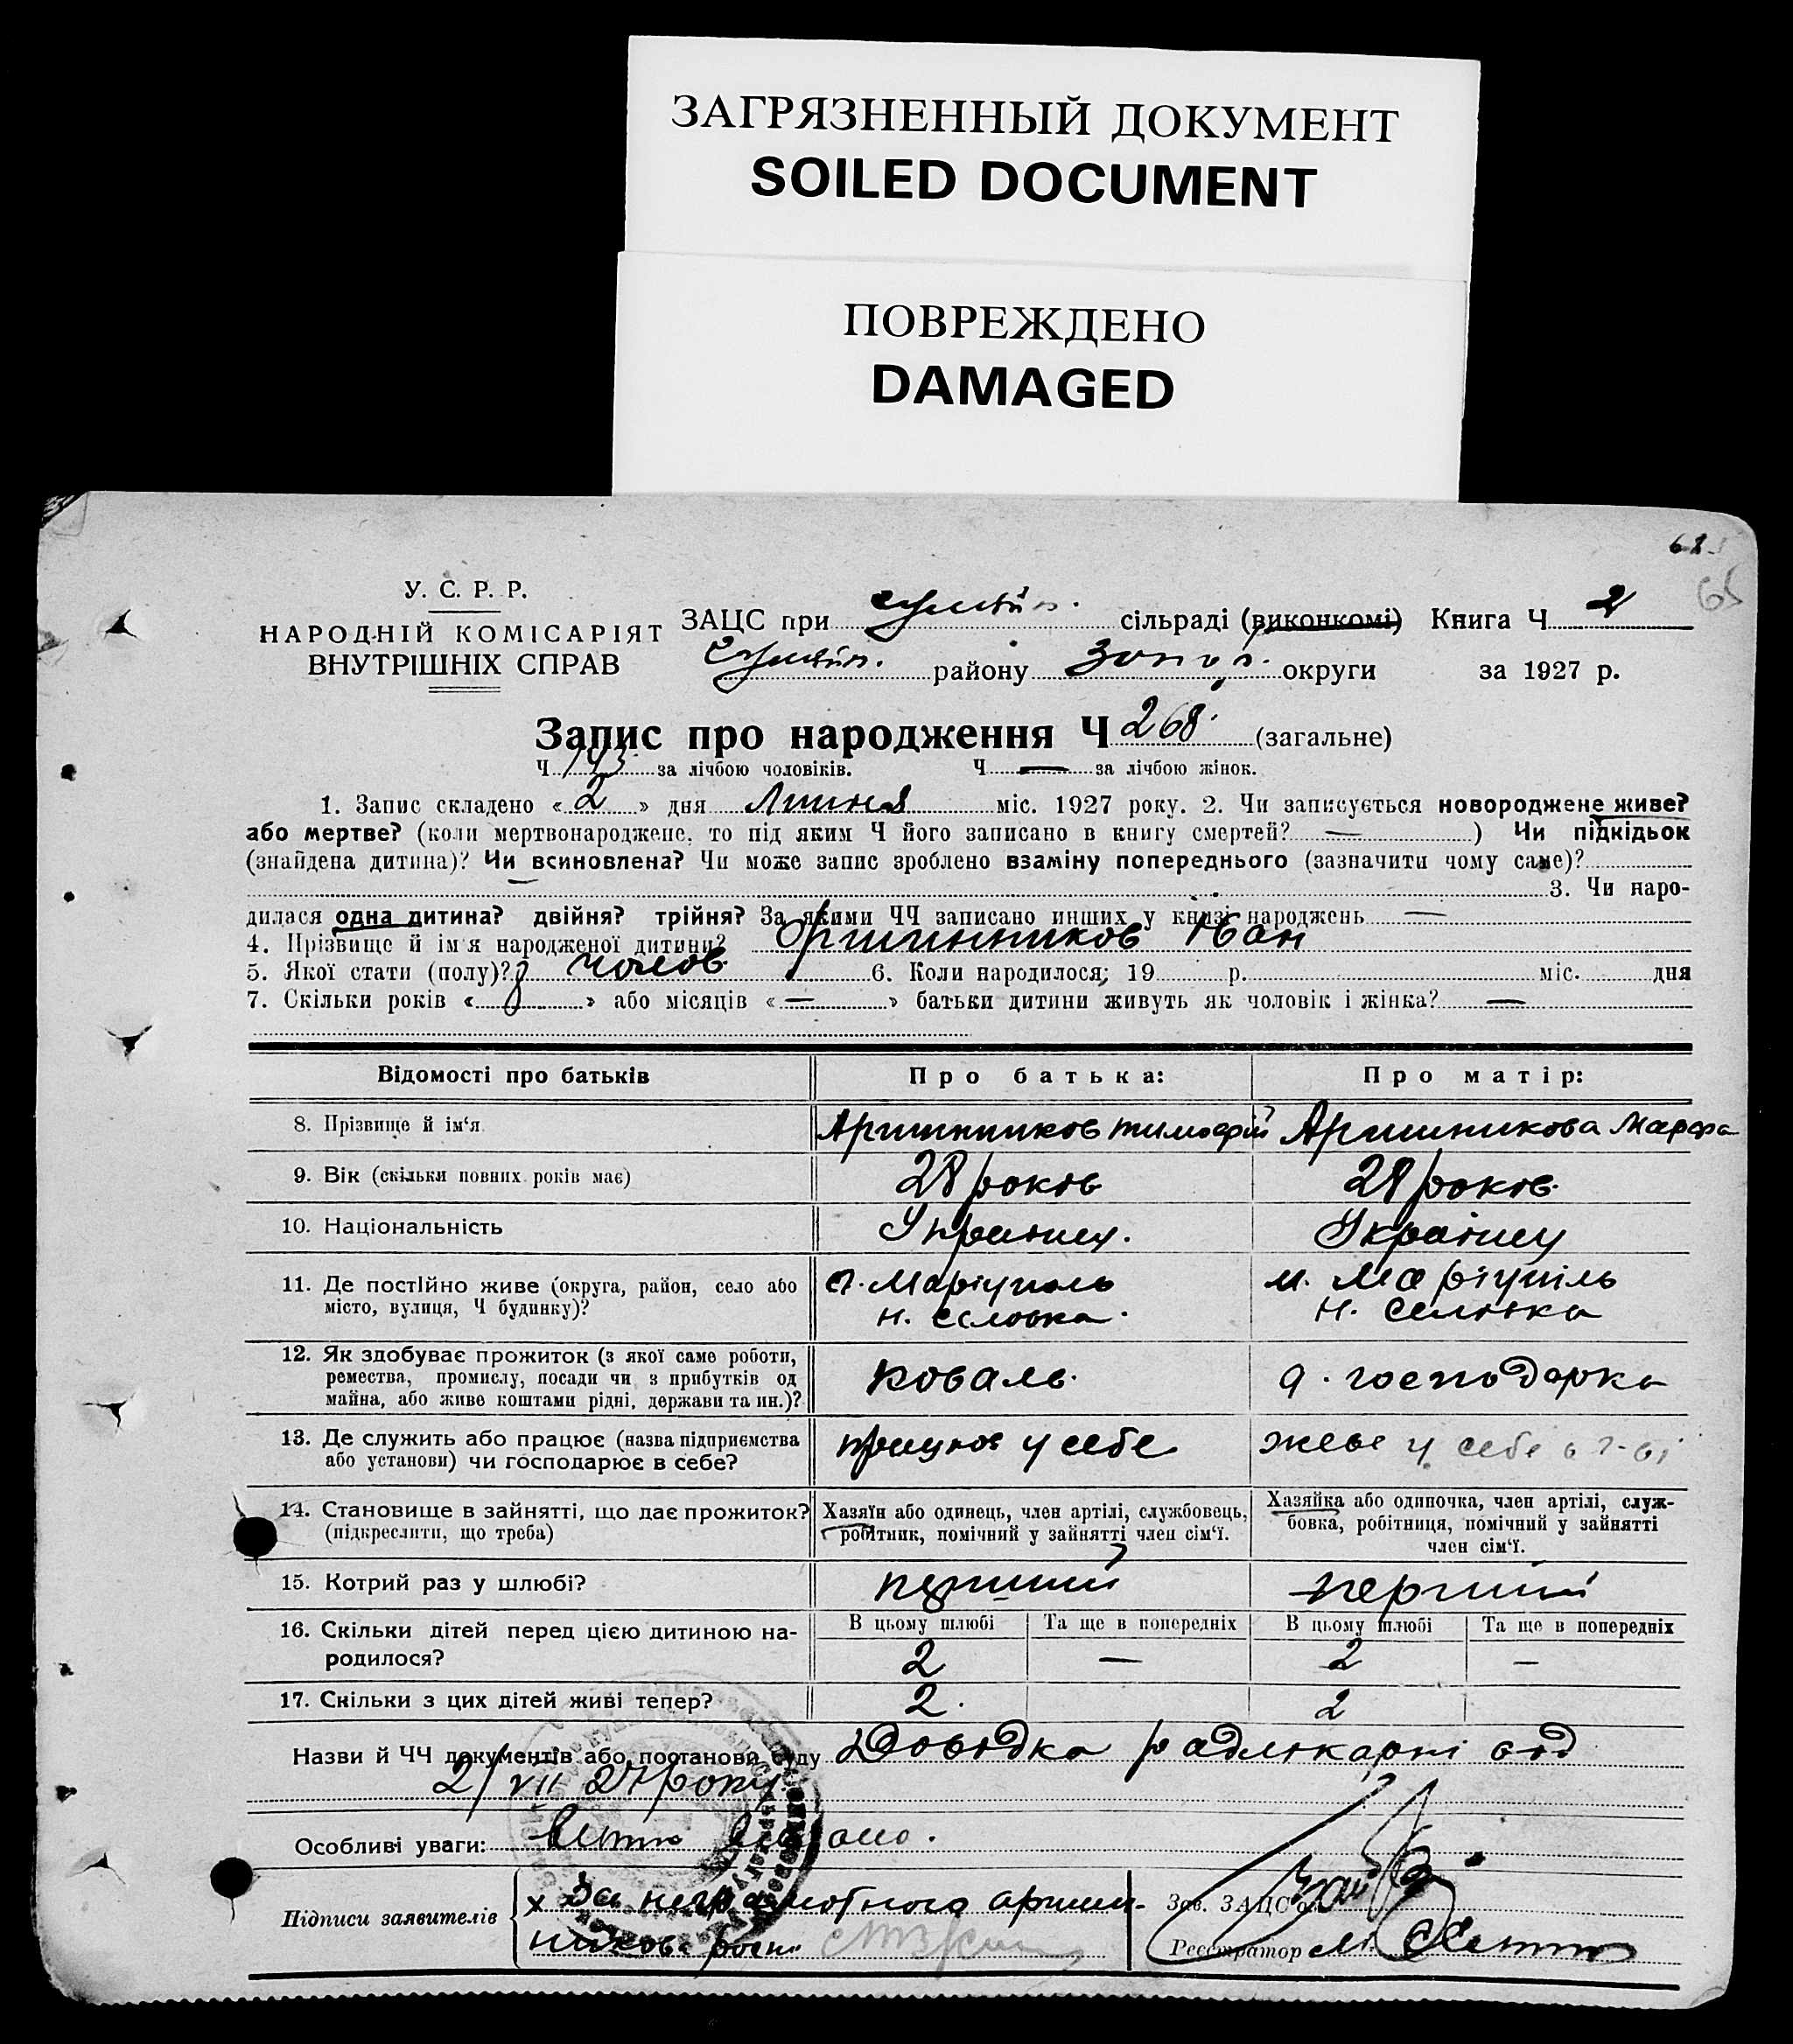 ЗАГРЯЗНЕННЫЙ ДОКУМЕНТ
SOILED DOCUMENT
ПОВРЕЖДЕНО
DAMAGED
62
65
У. С. Р. Р.
НАРОДНІЙ КОМІСАРІЯТ
ВНУТРІШНІХ СПРАВ
ЗАЦС при сільраді (виконкомі) Книга Ч 2
району Запор. округи за 1927 р.
Запис про народження Ч 268 (загальне)
Ч 143 за лічбою чоловіків. Ч — за лічбою жінок.
1. Запис складено « 2 » дня Липня міс. 1927 року. 2. Чи записується новороджене живе?
або мертве? (коли мертвонароджене, то під яким Ч його записано в книгу смертей? — ) Чи підкідьок
(знайдена дитина)? Чи всиновлена? Чи може запис зроблено взаміну попереднього (зазначити чому саме)?
3. Чи наро-
дилася одна дитина? двійня? трійня? За якими ЧЧ записано инших у книзі народжень —
4. Прізвище й ім'я народженої дитини? Оришинников Іван
5. Якої стати (полу)? чолов 6. Коли народилося; 19 р. міс. дня
7. Скільки років « » або місяців « — » батьки дитини живуть як чоловік і жінка? —
Відомості про батьків Про батька: Про матір:
8. Прізвище й ім'я Аришинников Тимофій Аришникова Марфа
9. Вік (скільки повних років має) 28 років 28 років.
10. Національність Українц. Українц
11. Де постійно живе (округа, район, село або місто, вулиця, Ч будинку)? Маріуполь м. Маріупіль
Н. Селовка. Н. Селовка
12. Як здобуває прожиток (з якої саме роботи,
ремества, промислу, посади чи з прибутків од
майна, або живе коштами рідні, держави та ин.)? Коваль. господарка
13. Де служить або працює (назва підприємства
або установи) чи господарює в себе? працює у себе живе у себе
14. Становище в зайнятті, що дає прожиток?
(підкреслити, що треба)
Хазяїн або одинець, член артілі, службовець,
робітник, помічний у зайнятті член сім'ї.
Хазяйка або одиночка, член артілі, служ-
бовка, робітниця, помічний у зайнятті
член сім'ї.
15. Котрий раз у шлюбі? перший перший
16. Скільки дітей перед цією дитиною на-
родилося?
В цьому шлюбі Та ще в попередніх В цьому шлюбі Та ще в попередніх
2 — 2 —
17. Скільки з цих дітей живі тепер? 2. 2
Назви й ЧЧ документів або постанови суду Довідка радлікарні від
2/VII 27 року.
Особливі уваги:
Підписи заявителів х За неграмотного аришин-
никова роспи
Зав. ЗАЦС'ом
Реєстратор